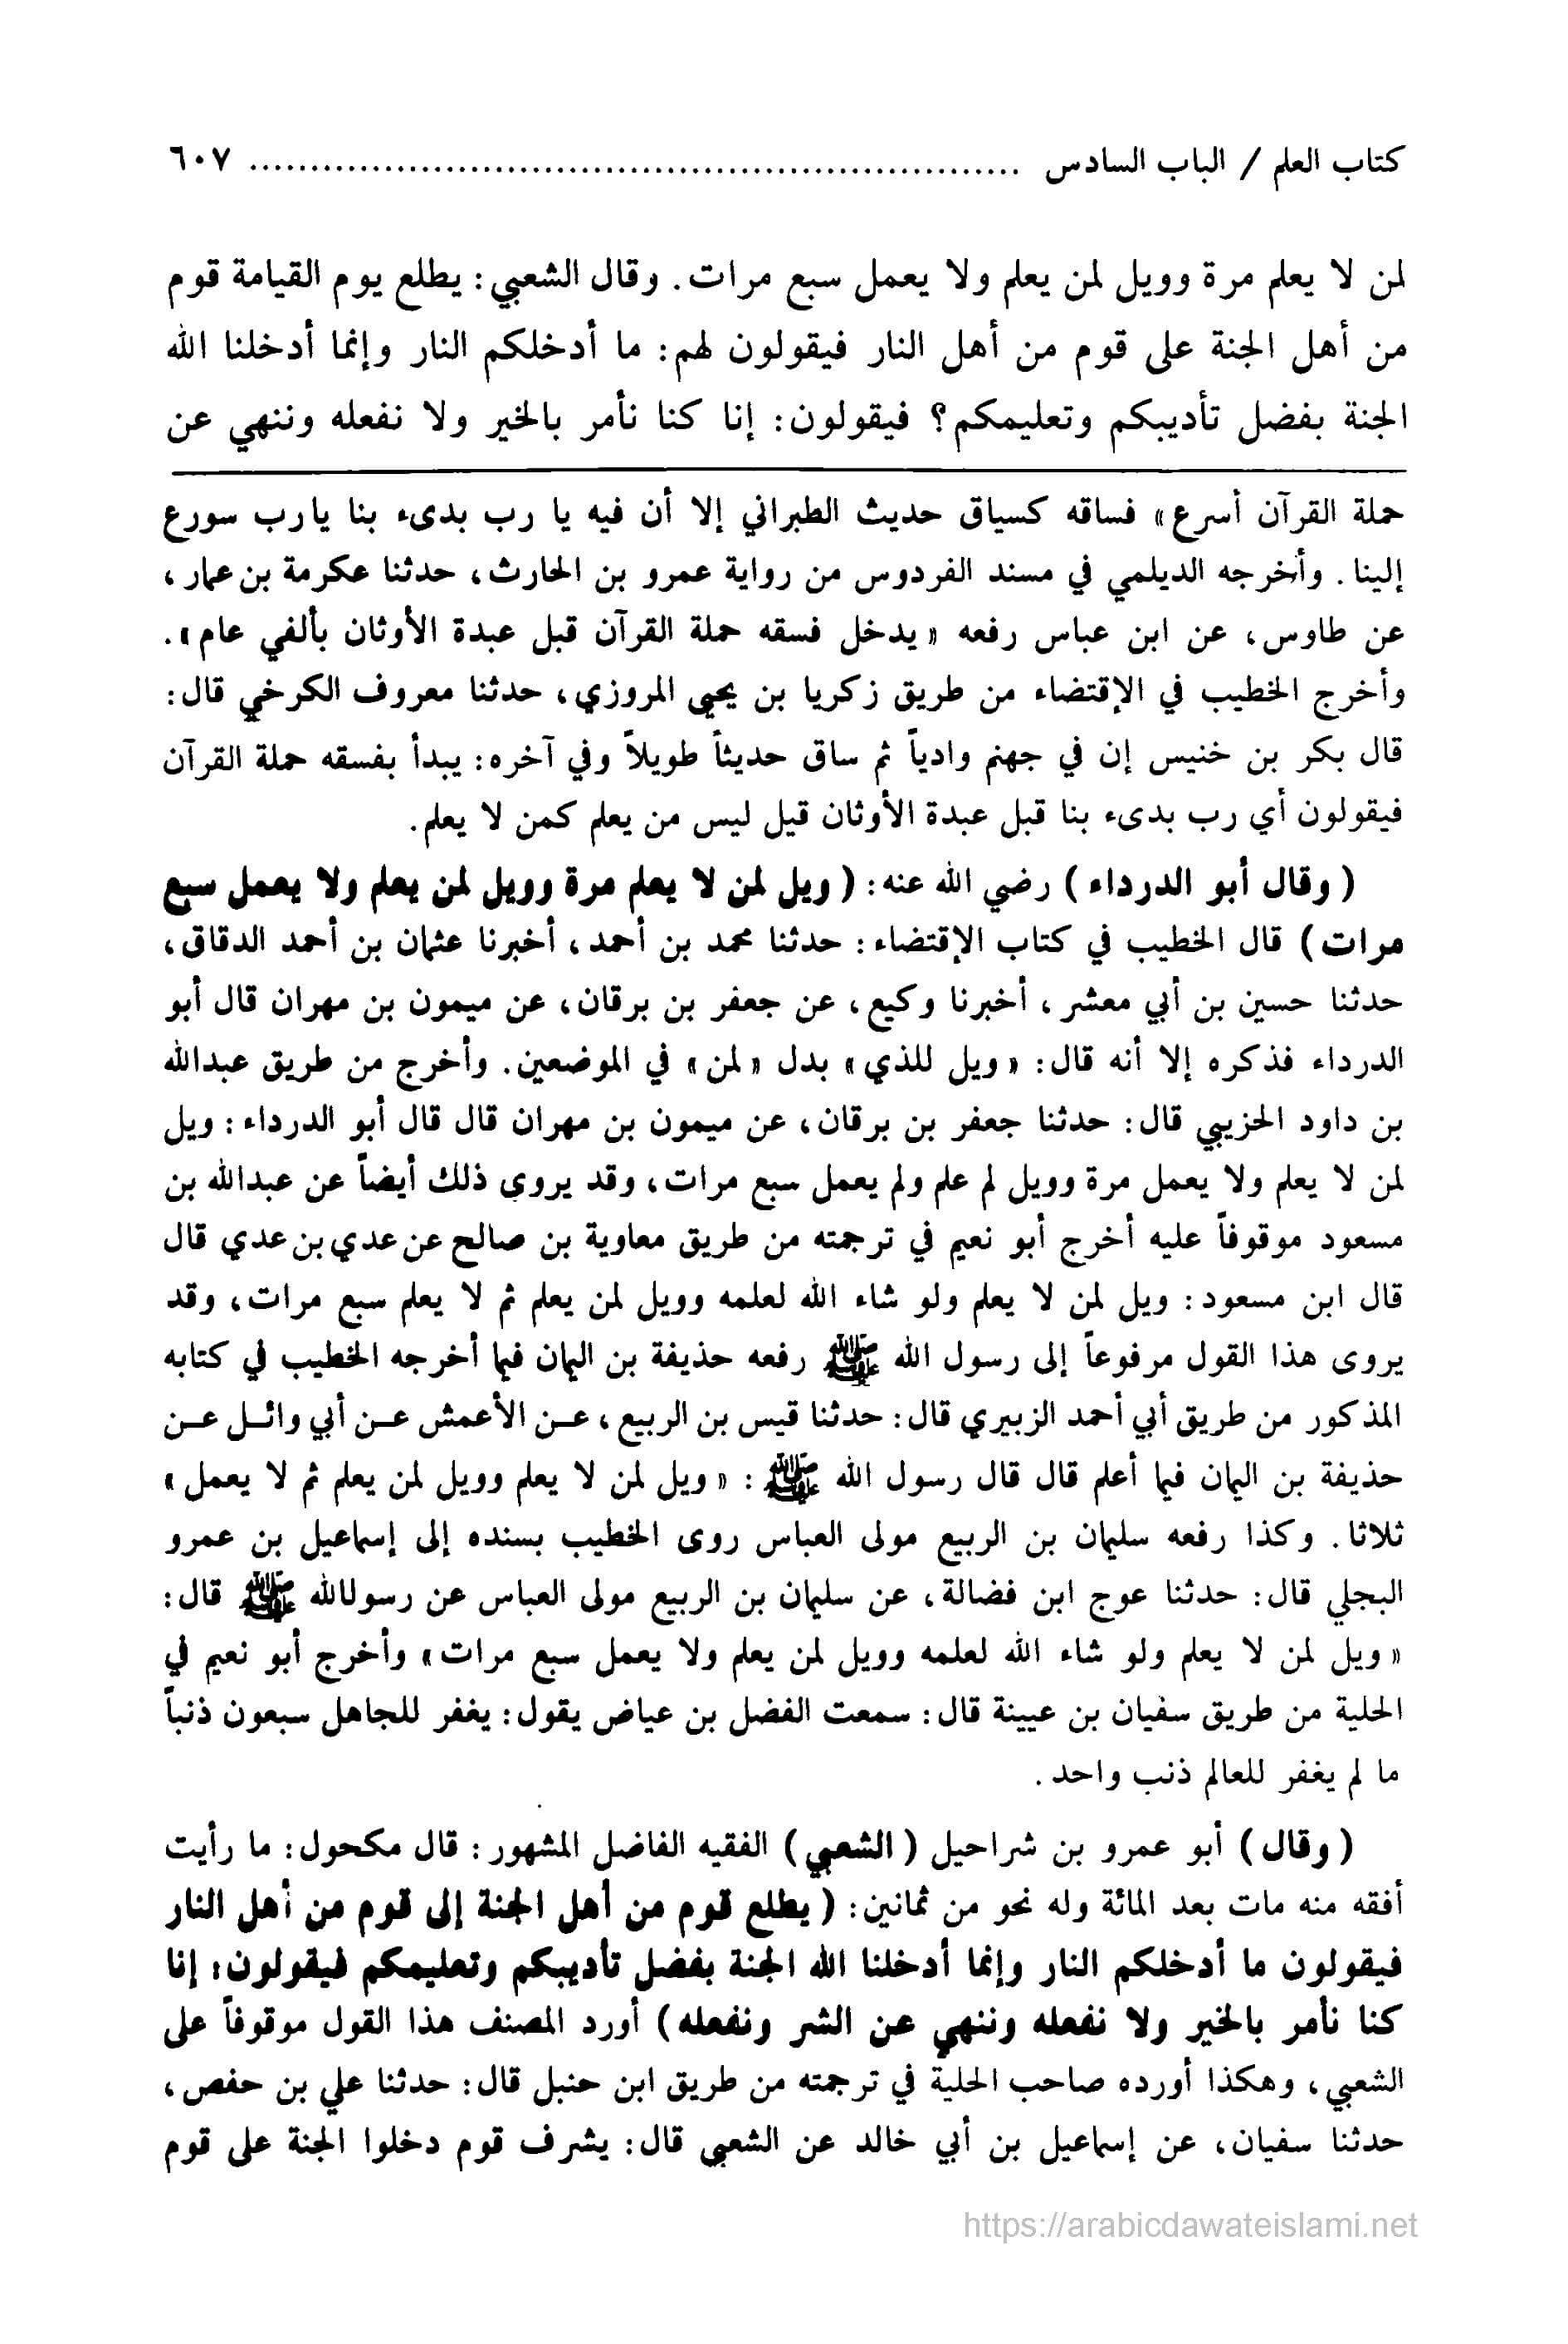 كتاب العلم / الباب السادس ................................................................ ٦٠٧
لمن لا يعلم مرة وويل لمن يعلم ولا يعمل سبع مرات. وقال الشعبي: يطلع يوم القيامة قوم
من أهل الجنة على قوم من أهل النار فيقولون لهم: ما أدخلكم النار وإنما أدخلنا الله
الجنة بفضل تأديبكم وتعليمكم؟ فيقولون: إنا كنا نأمر بالخير ولا نفعله وننهي عن
حملة القرآن أسرع» فساقه كسياق حديث الطبراني إلا أن فيه يا رب بدىء بنا يارب سورع
إلينا. وأخرجه الديلمي في مسند الفردوس من رواية عمرو بن الحارث، حدثنا عكرمة بن عمار،
عن طاوس، عن ابن عباس رفعه «يدخل فسقه حملة القرآن قبل عبدة الأوثان بألفي عام».
وأخرج الخطيب في الإقتضاء من طريق زكريا بن يحيى المروزي، حدثنا معروف الكرخي قال:
قال بكر بن خنيس إن في جهنم وادياً ثم ساق حديثاً طويلاً وفي آخره: يبدأ بفسقه حملة القرآن
فيقولون أي رب بدىء بنا قبل عبدة الأوثان قيل ليس من يعلم كمن لا يعلم.
(وقال أبو الدرداء) رضي الله عنه: (ويل لمن لا يعلم مرة وويل لمن يعلم ولا يعمل سبع
مرات) قال الخطيب في كتاب الإقتضاء: حدثنا محمد بن أحمد، أخبرنا عثمان بن أحمد الدقاق،
حدثنا حسين بن أبي معشر، أخبرنا وكيع، عن جعفر بن برقان، عن ميمون بن مهران قال أبو
الدرداء فذكره إلا أنه قال: «ويل للذي» بدل «لمن» في الموضعين. وأخرج من طريق عبدالله
بن داود الخزيبي قال: حدثنا جعفر بن برقان، عن ميمون بن مهران قال قال أبو الدرداء: ويل
لمن لا يعلم ولا يعمل مرة وويل لم علم ولم يعمل سبع مرات، وقد يروى ذلك أيضاً عن عبدالله بن
مسعود موقوفاً عليه أخرج أبو نعيم في ترجمته من طريق معاوية بن صالح عن عدي بن عدي قال
قال ابن مسعود: ويل لمن لا يعلم ولو شاء الله لعلمه وويل لمن يعلم ثم لا يعلم سبع مرات، وقد
يروى هذا القول مرفوعاً إلى رسول الله ﷺ رفعه حذيفة بن اليمان فيما أخرجه الخطيب في كتابه
المذكور من طريق أبي أحمد الزبيري قال: حدثنا قيس بن الربيع، عن الأعمش عن أبي وائل عن
حذيفة بن اليمان فيما أعلم قال قال رسول الله ﷺ: «ويل لمن لا يعلم وويل لمن يعلم ثم لا يعمل»
ثلاثا. وكذا رفعه سليمان بن الربيع مولى العباس روى الخطيب بسنده إلى إسماعيل بن عمرو
البجلي قال: حدثنا عوج ابن فضالة، عن سليمان بن الربيع مولى العباس عن رسولالله ﷺ قال:
«ويل لمن لا يعلم ولو شاء الله لعلمه وويل لمن يعلم ولا يعمل سبع مرات» وأخرج أبو نعيم في
الحلية من طريق سفيان بن عيينة قال: سمعت الفضل بن عياض يقول: يغفر للجاهل سبعون ذنباً
ما لم يغفر للعالم ذنب واحد.
(وقال) أبو عمرو بن شراحيل (الشعبي) الفقيه الفاضل المشهور: قال مكحول: ما رأيت
أفقه منه مات بعد المائة وله نحو من ثمانين: (يطلع قوم من أهل الجنة إلى قوم من أهل النار
فيقولون ما أدخلكم النار وإنما أدخلنا الله الجنة بفضل تأديبكم وتعليمكم فيقولون: إنا
كنا نأمر بالخير ولا نفعله وننهي عن الشر ونفعله) أورد المصنف هذا القول موقوفاً على
الشعبي، وهكذا أورده صاحب الحلية في ترجمته من طريق ابن حنبل قال: حدثنا علي بن حفص،
حدثنا سفيان، عن إسماعيل بن أبي خالد عن الشعبي قال: يشرف قوم دخلوا الجنة على قوم
https://arabicdawateislami.net